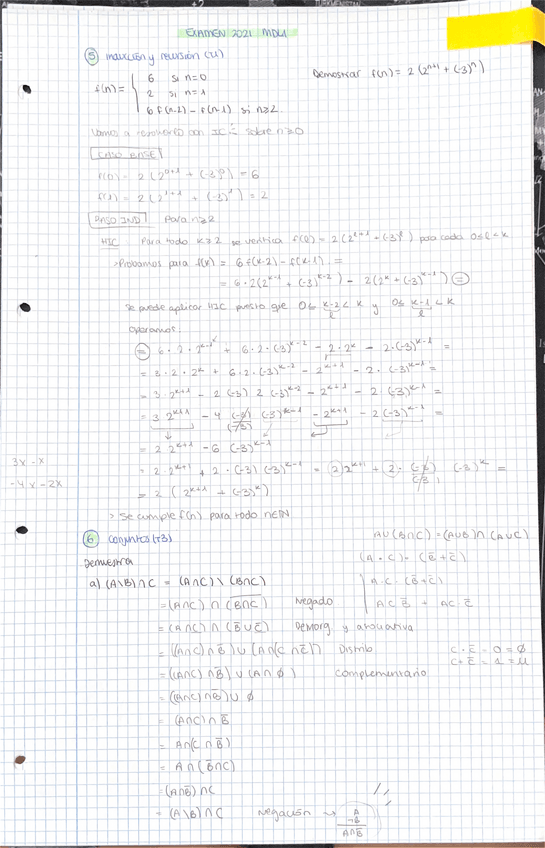 EXAMEN 2021 MDL1
⑤ inducción y recursión (U)
f(n) = { 6 si n=0
2 si n=1
6 f(n-2) - f(n-1) si n≥2
Demostrar f(n) = 2(2ⁿ⁺¹ + (-3)ⁿ)
Vamos a probarlo con IC sobre n≥0
CASO BASE
f(0) = 2(2⁰⁺¹ + (-3)⁰) = 6
f(1) = 2(2¹⁺¹ + (-3)¹) = 2
PASO IND Para n≥2
HIC Para todo k≥2 se verifica f(l) = 2(2ˡ⁺¹ + (-3)ˡ) para cada 0≤l<k
> Probamos para f(k) = 6 f(k-2) - f(k-1) =
= 6·2(2ᵏ⁻¹ + (-3)ᵏ⁻²) - 2(2ᵏ + (-3)ᵏ⁻¹) =
Se puede aplicar HIC puesto que 0≤ k-2 < k y 0≤ k-1 < k
l l
Operamos:
= 6·2·2ᵏ⁻¹ + 6·2·(-3)ᵏ⁻² - 2·2ᵏ - 2·(-3)ᵏ⁻¹ =
= 3·2·2ᵏ + 6·2·(-3)ᵏ⁻² - 2ᵏ⁺¹ - 2·(-3)ᵏ⁻¹ =
= 3·2ᵏ⁺¹ - 2(-3) 2 (-3)ᵏ⁻² - 2ᵏ⁺¹ - 2(-3)ᵏ⁻¹ =
= 3 2ᵏ⁺¹ - 4 (-3)ᵏ⁻¹ - 2ᵏ⁺¹ - 2(-3)ᵏ⁻¹ =
= 2 2ᵏ⁺¹ - 6 (-3)ᵏ⁻¹
3x - x
-4x - 2x
= 2·2ᵏ⁺¹ + 2·(-3)(-3)ᵏ⁻¹ = 2 2ᵏ⁺¹ + 2· (-3)ᵏ =
= 2 (2ᵏ⁺¹ + (-3)ᵏ)
> Se cumple f(n) para todo n∈ℕ
⑥ Conjuntos (T3)
A∪(B∩C) = (A∪B)∩(A∪C)
Demuestra
(A·C)·(B̄+C̄)
a) (A\B)∩C = (A∩C) \ (B∩C)
A·C·(B̄+C̄)
= (A∩C) ∩ (B∩C)̅ Negado
AC B̄ + AC·C̄
= (A∩C) ∩ (B̄∪C̄) DeMorg y asociativa
= ((A∩C)∩B̄) ∪ (A∩(C∩C̄)) Distrib
C·C̄ = 0 = ∅
C+C̄ = 1 = U
= ((A∩C)∩B̄) ∪ (A∩∅) Complementario
= ((A∩C)∩B̄) ∪ ∅
= (A∩C)∩B̄
= A∩(C∩B̄)
= A∩(B̄∩C)
= (A∩B̄)∩C
= (A\B)∩C Negación → A
¬B
A∩B̄